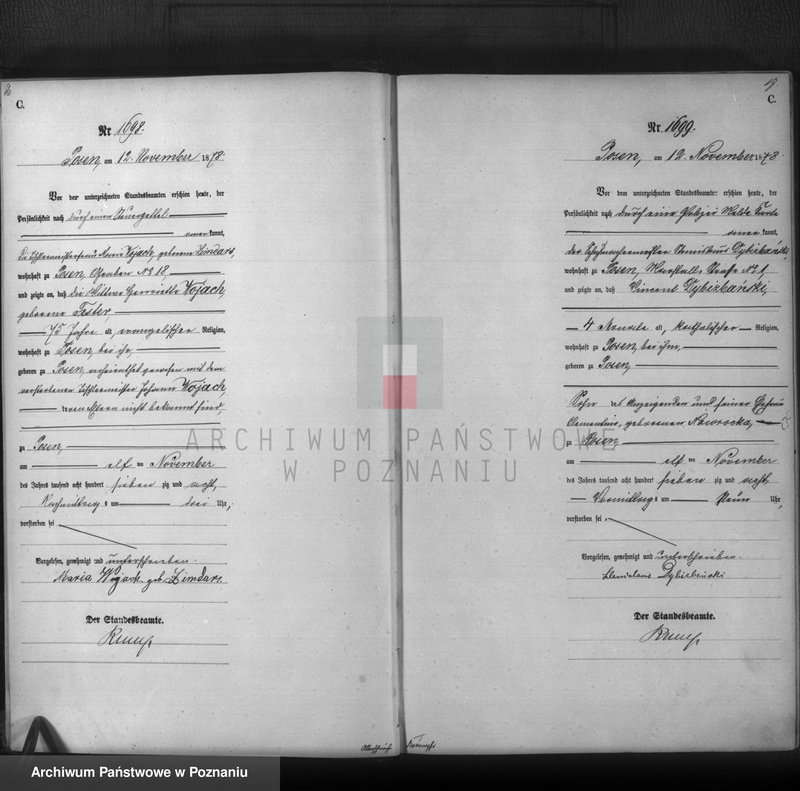 C.
Nr 1698.
Posen, am 12. November 1878
Vor dem unterzeichneten Standesbeamten erschien heute, der
Persönlichkeit nach durch einen Steuerzettel
kannt,
die Tischlermeisterfrau Maria Wojach, geborene Zimdars,
wohnhaft zu Posen, Graben No 18,
und zeigte an, daß die Wittwe Henriette Wojach,
geborene Fester,
75 Jahre alt, evangelischer Religion,
wohnhaft zu Posen, bei ihr,
geboren zu Posen, verheirathet gewesen mit dem
verstorbenen Tischlermeister Johann Wojach,
deren Eltern nicht bekannt sind,
zu Posen,
am elf ten November
des Jahres tausend acht hundert sieben zig und acht,
Nachmittags um drei Uhr,
verstorben sei
Vorgelesen, genehmigt und unterschrieben.
Maria Wojach geb. Zimdars
Der Standesbeamte.
C.
Nr. 1699.
Posen, am 12. November 1878
Vor dem unterzeichneten Standesbeamten erschien heute, der
Persönlichkeit nach durch eine Polizei Melde Karte
kannt,
der Schuhmachermeister Stanislaus Dybizbański,
wohnhaft zu Posen, Straße No 1,
und zeigte an, daß Vincent Dybizbański,
4 Monate alt, katholischer Religion,
wohnhaft zu Posen, bei ihm,
geboren zu Posen,
Sohn des Anzeigenden und seiner Ehefrau
Clementine, geborenen Naworocka,
zu Posen,
am elf ten November
des Jahres tausend acht hundert sieben zig und acht,
Vormittags um Neun Uhr,
verstorben sei
Vorgelesen, genehmigt und unterschrieben.
Stanislaus Dybizbański
Der Standesbeamte.
ARCHIWUM PAŃSTWOWE
W POZNANIU
Archiwum Państwowe w Poznaniu